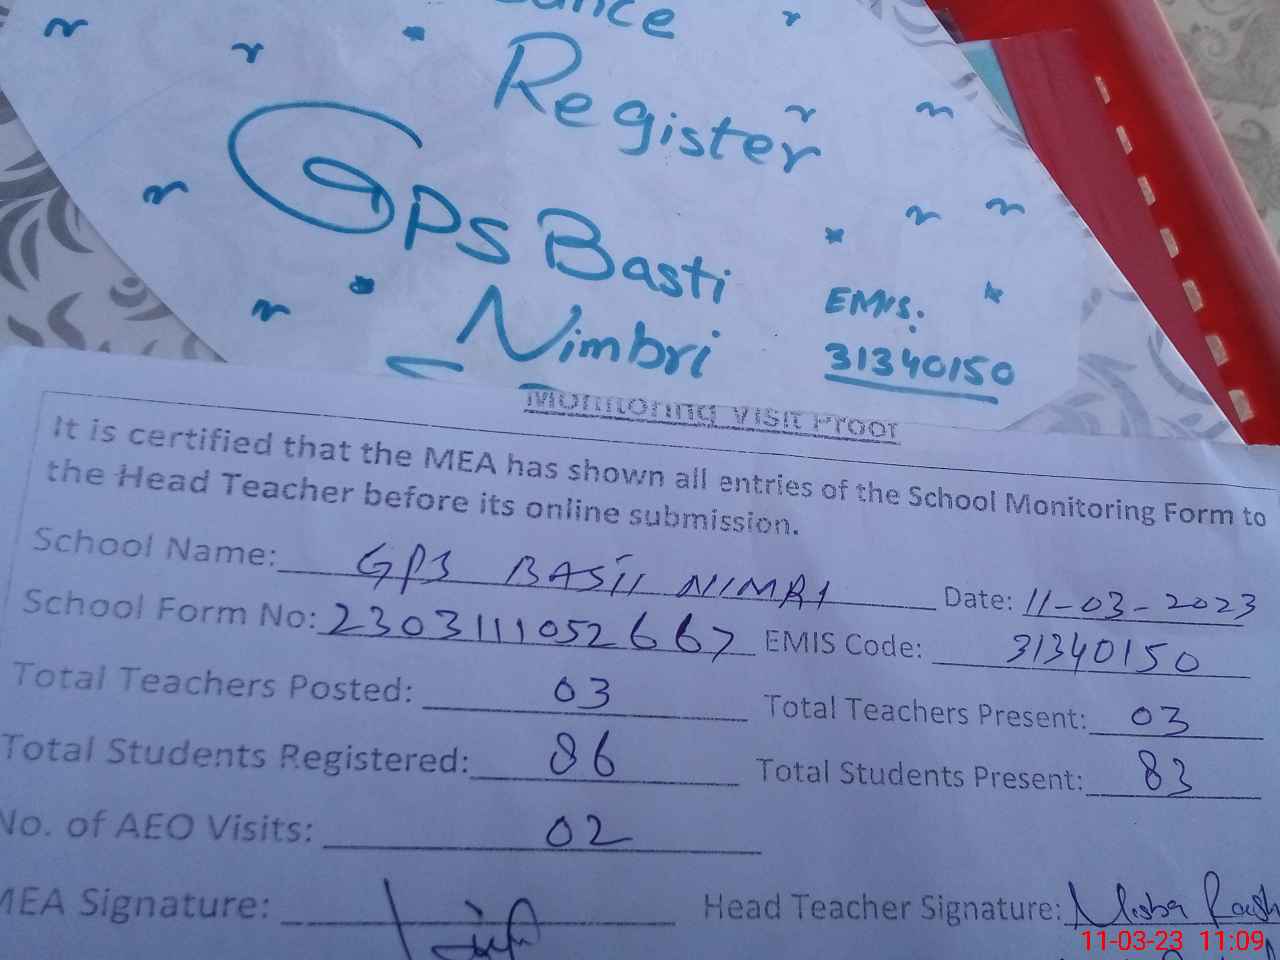 Register
GPS Basti
Nimbri
EMIS:
31340150
Monitoring Visit Proof
It is certified that the MEA has shown all entries of the School Monitoring Form to
the Head Teacher before its online submission.
School Name: GPS BASTI NIMRI Date: 11-03-2023
School Form No: 2303111052667 EMIS Code: 31340150
Total Teachers Posted: 03 Total Teachers Present: 03
Total Students Registered: 86 Total Students Present: 83
No. of AEO Visits: 02
MEA Signature: Head Teacher Signature: Misba
11-03-23 11:09